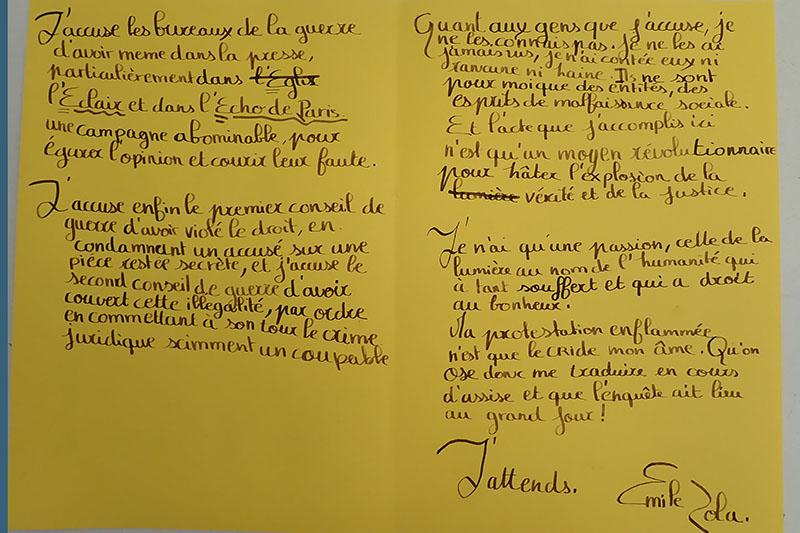 J'accuse les bureaux de la guerre
d'avoir meme dans la presse,
particulièrement dans l'Eglix
l'Eclair et dans l'Echo de Paris.
une campagne abominable, pour
égurer l'opinion et courir leur faute.
J'accuse enfin le premier conseil de
guerre d'avoir violé le droit, en
condamnent un accusé sur une
pièce restée secrète, et j'accuse le
second conseil de guerre d'avoir
couvert cette illégalité, par ordre
en commettant à son tour le crime
juridique scimment un coupable
Quant aux gens que j'accuse, je
ne les connais pas. Je ne les ai
jamais vus, je n'ai contée eux ni
rancune ni haine. Ils ne sont
pour moi que des entités, des
esprits de malfaissance sociale.
Et l'acte que j'accomplis ici
n'est qu'un moyen révolutionnaire
pour hâter l'explosion de la
lumière vérité et de la justice.
Je n'ai qu'une passion, celle de la
lumière au nom de l'humanité qui
à tant souffert et qui a droit
au bonheur.
Ma protestation enflammée
n'est que le cri de mon âme. Qu'on
ose donc me traduire en cours
d'assise et que l'enquête ait lieu
au grand jour !
J'attends.
Emile Zola.